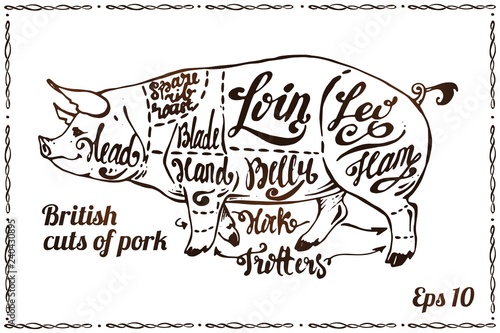 Spare
rib
roast
Loin
Leg
Head
Blade
Hand
Belly
Ham
Hock
Trotters
British
cuts of pork
Eps 10
Adobe Stock